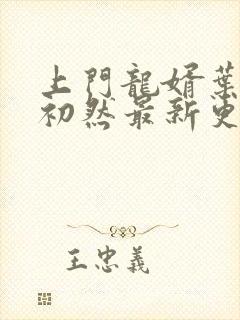 上門龍婿葉
初然最新更
王忠義